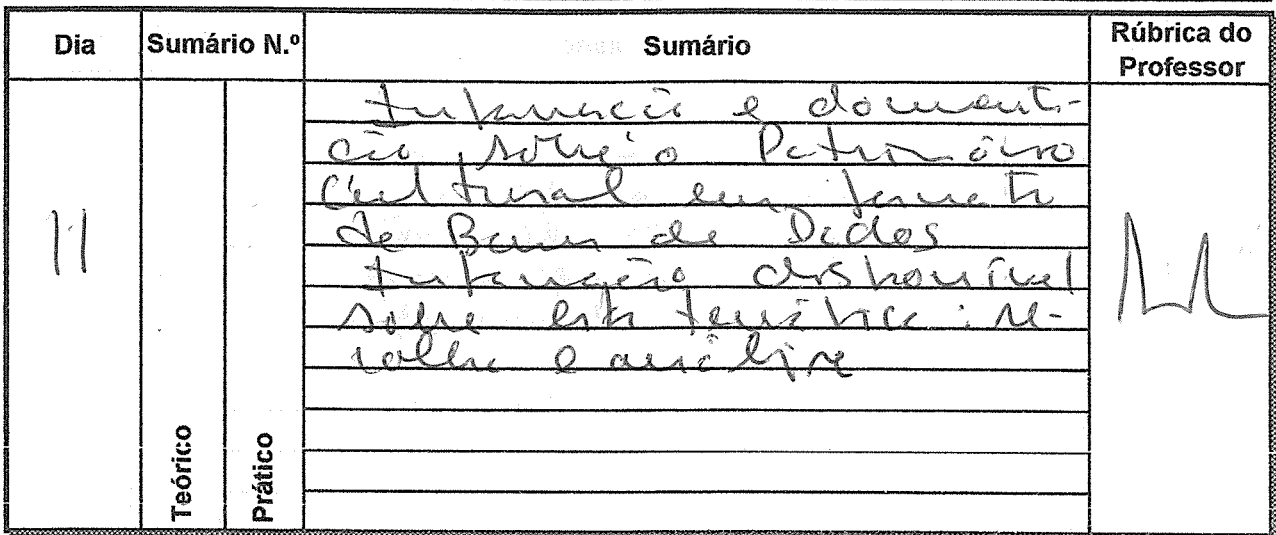 Dia
Sumário N.º
Sumário
Rúbrica do
Professor
11
Informação e documenta-
ção sobre o Património
Cultural em formato
de Bases de Dados
Informação disponível
sobre esta temática: re-
colha e análise
Teórico
Prático